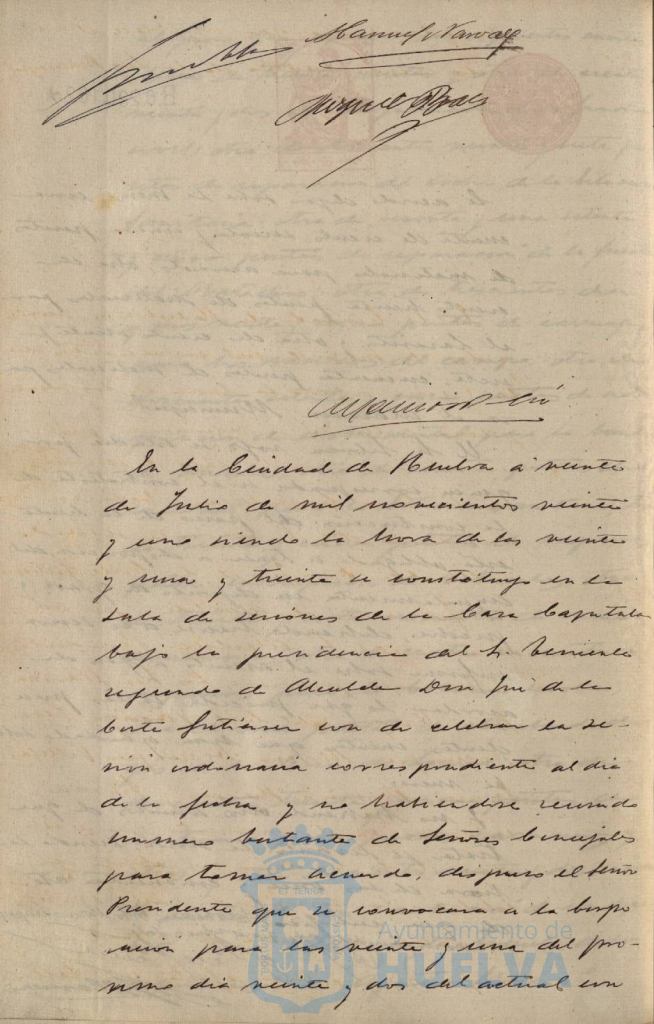 Manuel Narvaez
Miguel
En la Ciudad de Huelva á veinte
de Julio de mil novecientos veinte
y uno siendo la hora de las veinte
y una y treinta se constituyó en la
Sala de sesiones de la Casa Capitular
bajo la presidencia del Sr. Teniente
segundo de Alcalde Don José de la
Corte Gutierrez con de celebrar la se-
sión ordinaria correspondiente al dia
de la fecha y no habiendose reunido
numero bastante de Señores Concejales
para tomar acuerdo, dispuso el Señor
Presidente que se convocara a la Corpo
ración para las veinte y una del pro-
ximo dia veinte y dos del actual con
Ayuntamiento de
HUELVA